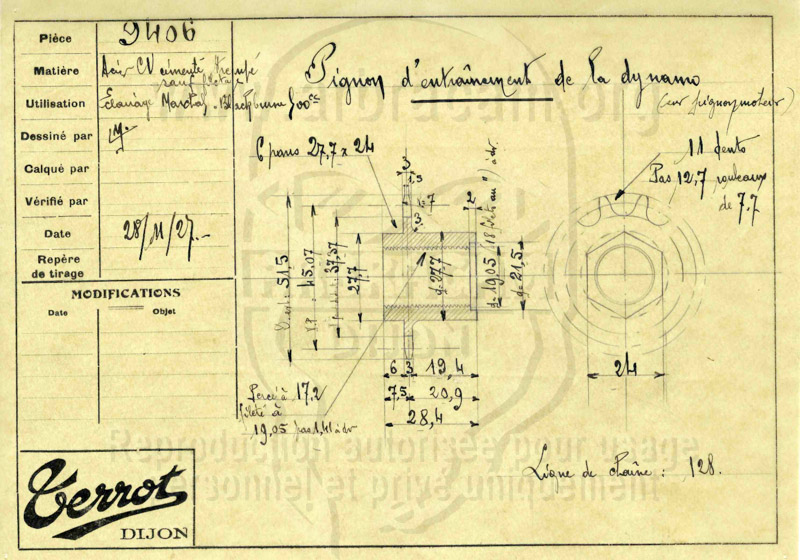 Pièce 9406
Matière Acier CV cémenté trempé
sauf filetage
Utilisation Eclairage Marchal Blackburne 500cc
Dessiné par
Calqué par
Vérifié par
Date 28/11/27.-
Repère
de tirage
MODIFICATIONS
Date Objet
Pignon d'entraînement de la dynamo
(sur pignon moteur)
6 pans 27,7 x 24
11 dents
Pas 12,7 rouleaux
de 7.7
3
1,5
2
51,5
45.07
37,37
27,7
d=27,7
d=19,05 (18 filets au ") à dr.
d=21,5
6 3 19,4
7,5 20,9
28,4
24
Percé à 17,2
fileté à
19,05 pas 1,41 à dr
Ligne de chaîne : 128.
Terrot
DIJON
Reproduction autorisée pour usage
personnel et privé uniquement